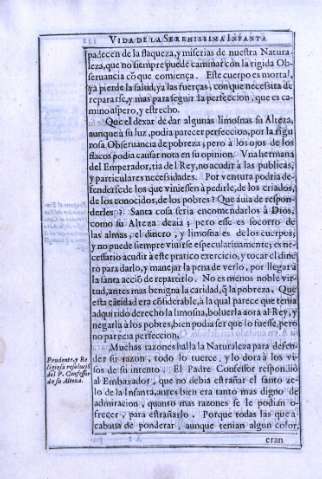 VIDA DE LA SERENISSIMA INFANTA
padecen de la flaqueza, y miserias de nuestra Natura-
leza, que no siempre puede caminar con la rigida Ob-
seruancia cõ que comiença. Este cuerpo es mortal,
ya pierde la salud, ya las fuerças, con que necessita de
repararse, y mas para seguir la perfeccion, que es ca-
mino aspero, y estrecho.
Que el dexar de dar algunas limosnas su Alteza,
aunque à su luz, podia parecer perfeccion, por la rigu
rosa Obseruancia de pobreza; pero à los ojos de los
flacos podia causar nota en su opinion. Vna hermana
del Emperador, tia del Rey, no acudir à las publicas,
y particulares necessidades. Por ventura podria de-
fenderse de los que viniessen à pedirle, de los criados,
de los conocidos, de los pobres? Que auia de respon-
derles? Santa cosa seria encomendarlos à Dios,
como su Alteza dezia; pero esse es socorro de
las almas, el dinero, y limosna es de los cuerpos,
y no puede siempre viuirse especulatiuamente; es ne-
cessario acudir à este practico exercicio, y tocar el dine
ro para darlo, y manejar la pena de verlo, por llegar à
la santa acciõ de repartirlo. No es menos noble vir-
tud, antes mas benigna la caridad, q̃ la pobreza. Que
esta cãtidad era cõsiderable, à la qual parece que tenia
adquirido derecho la limosna, boluerla aora al Rey, y
negarla à los pobres, bien podia ser que lo fuesse, pero
no parecia perfeccion.
Muchas razones halla la Naturaleza para defen-
der su razon, todo lo tuerce, y lo dora à los vi-
sos de su intento. El Padre Confessor respondiò
al Embaxador, que no debia estrañar el santo ze-
lo de la Infanta, antes bien era tanto mas digno de
admiracion, quanto mas razones se le podian o-
frecer, para estrañarlo. Porque todas las que a-
cabaua de ponderar, aunque tenian algun color,
eran
Prudente, y Re
ligiosa respuesta
del P. Confessor
de su Alteza.